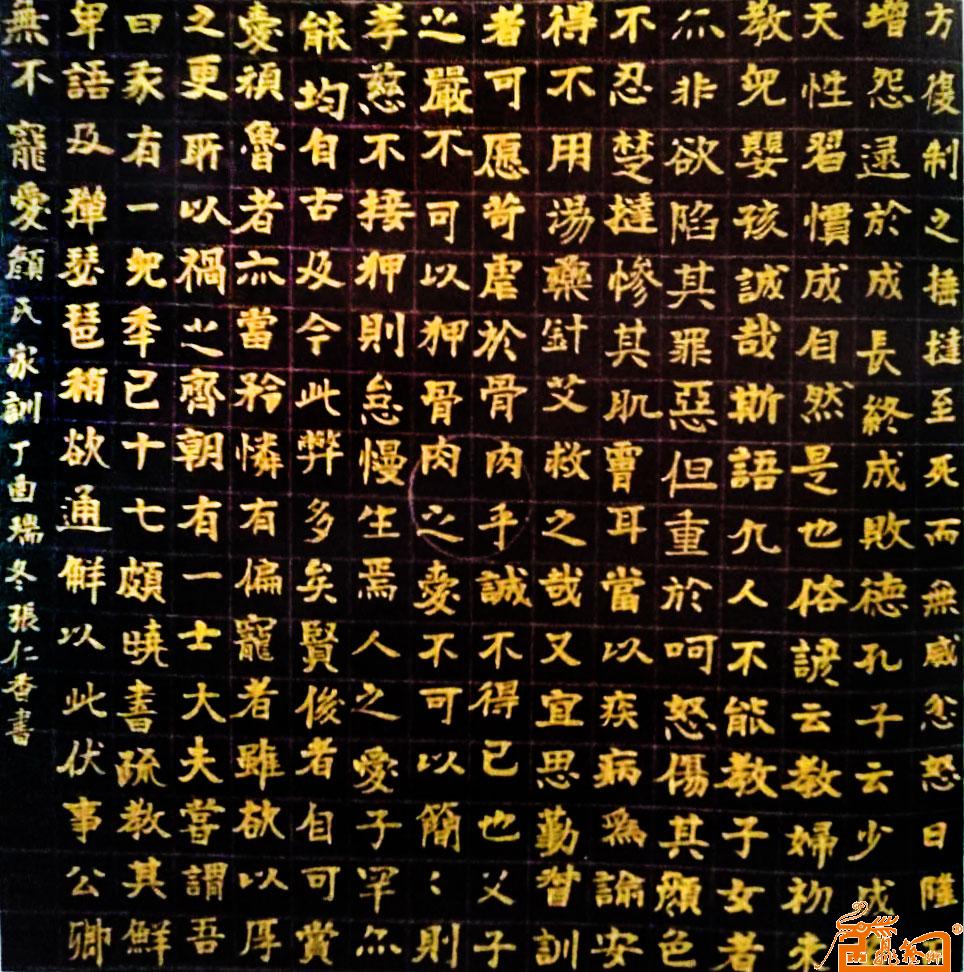 方復制之捶撻至死而無威忿怒日隆
增怨逮於成長終成敗德孔子云少成
天性習慣成自然是也俗諺云教婦初來
教兒嬰孩誠哉斯語凢人不能教子女者
亦非欲陷其罪惡但重於呵怒傷其顏色
不忍楚撻慘其肌膚耳當以疾病為諭安
得不用湯藥針艾救之哉又宜思勤督訓
者可愿苛虐於骨肉乎誠不得已也父子
之嚴不可以狎骨肉之愛不可以簡〻則
孝慈不接狎則怠慢生焉人之愛子罕尒
能均自古及今此弊多矣賢俊者自可賞
愛頑魯者亦當矜憐有偏寵者雖欲以厚
之更所以禍之齊朝有一士大夫嘗謂吾
曰我有一兒年已十七頗曉書疏教其鮮
卑語及彈瑟琶稍欲通解以此伏事公卿
無不寵愛顏氏家訓丁酉瑞冬張仁香書